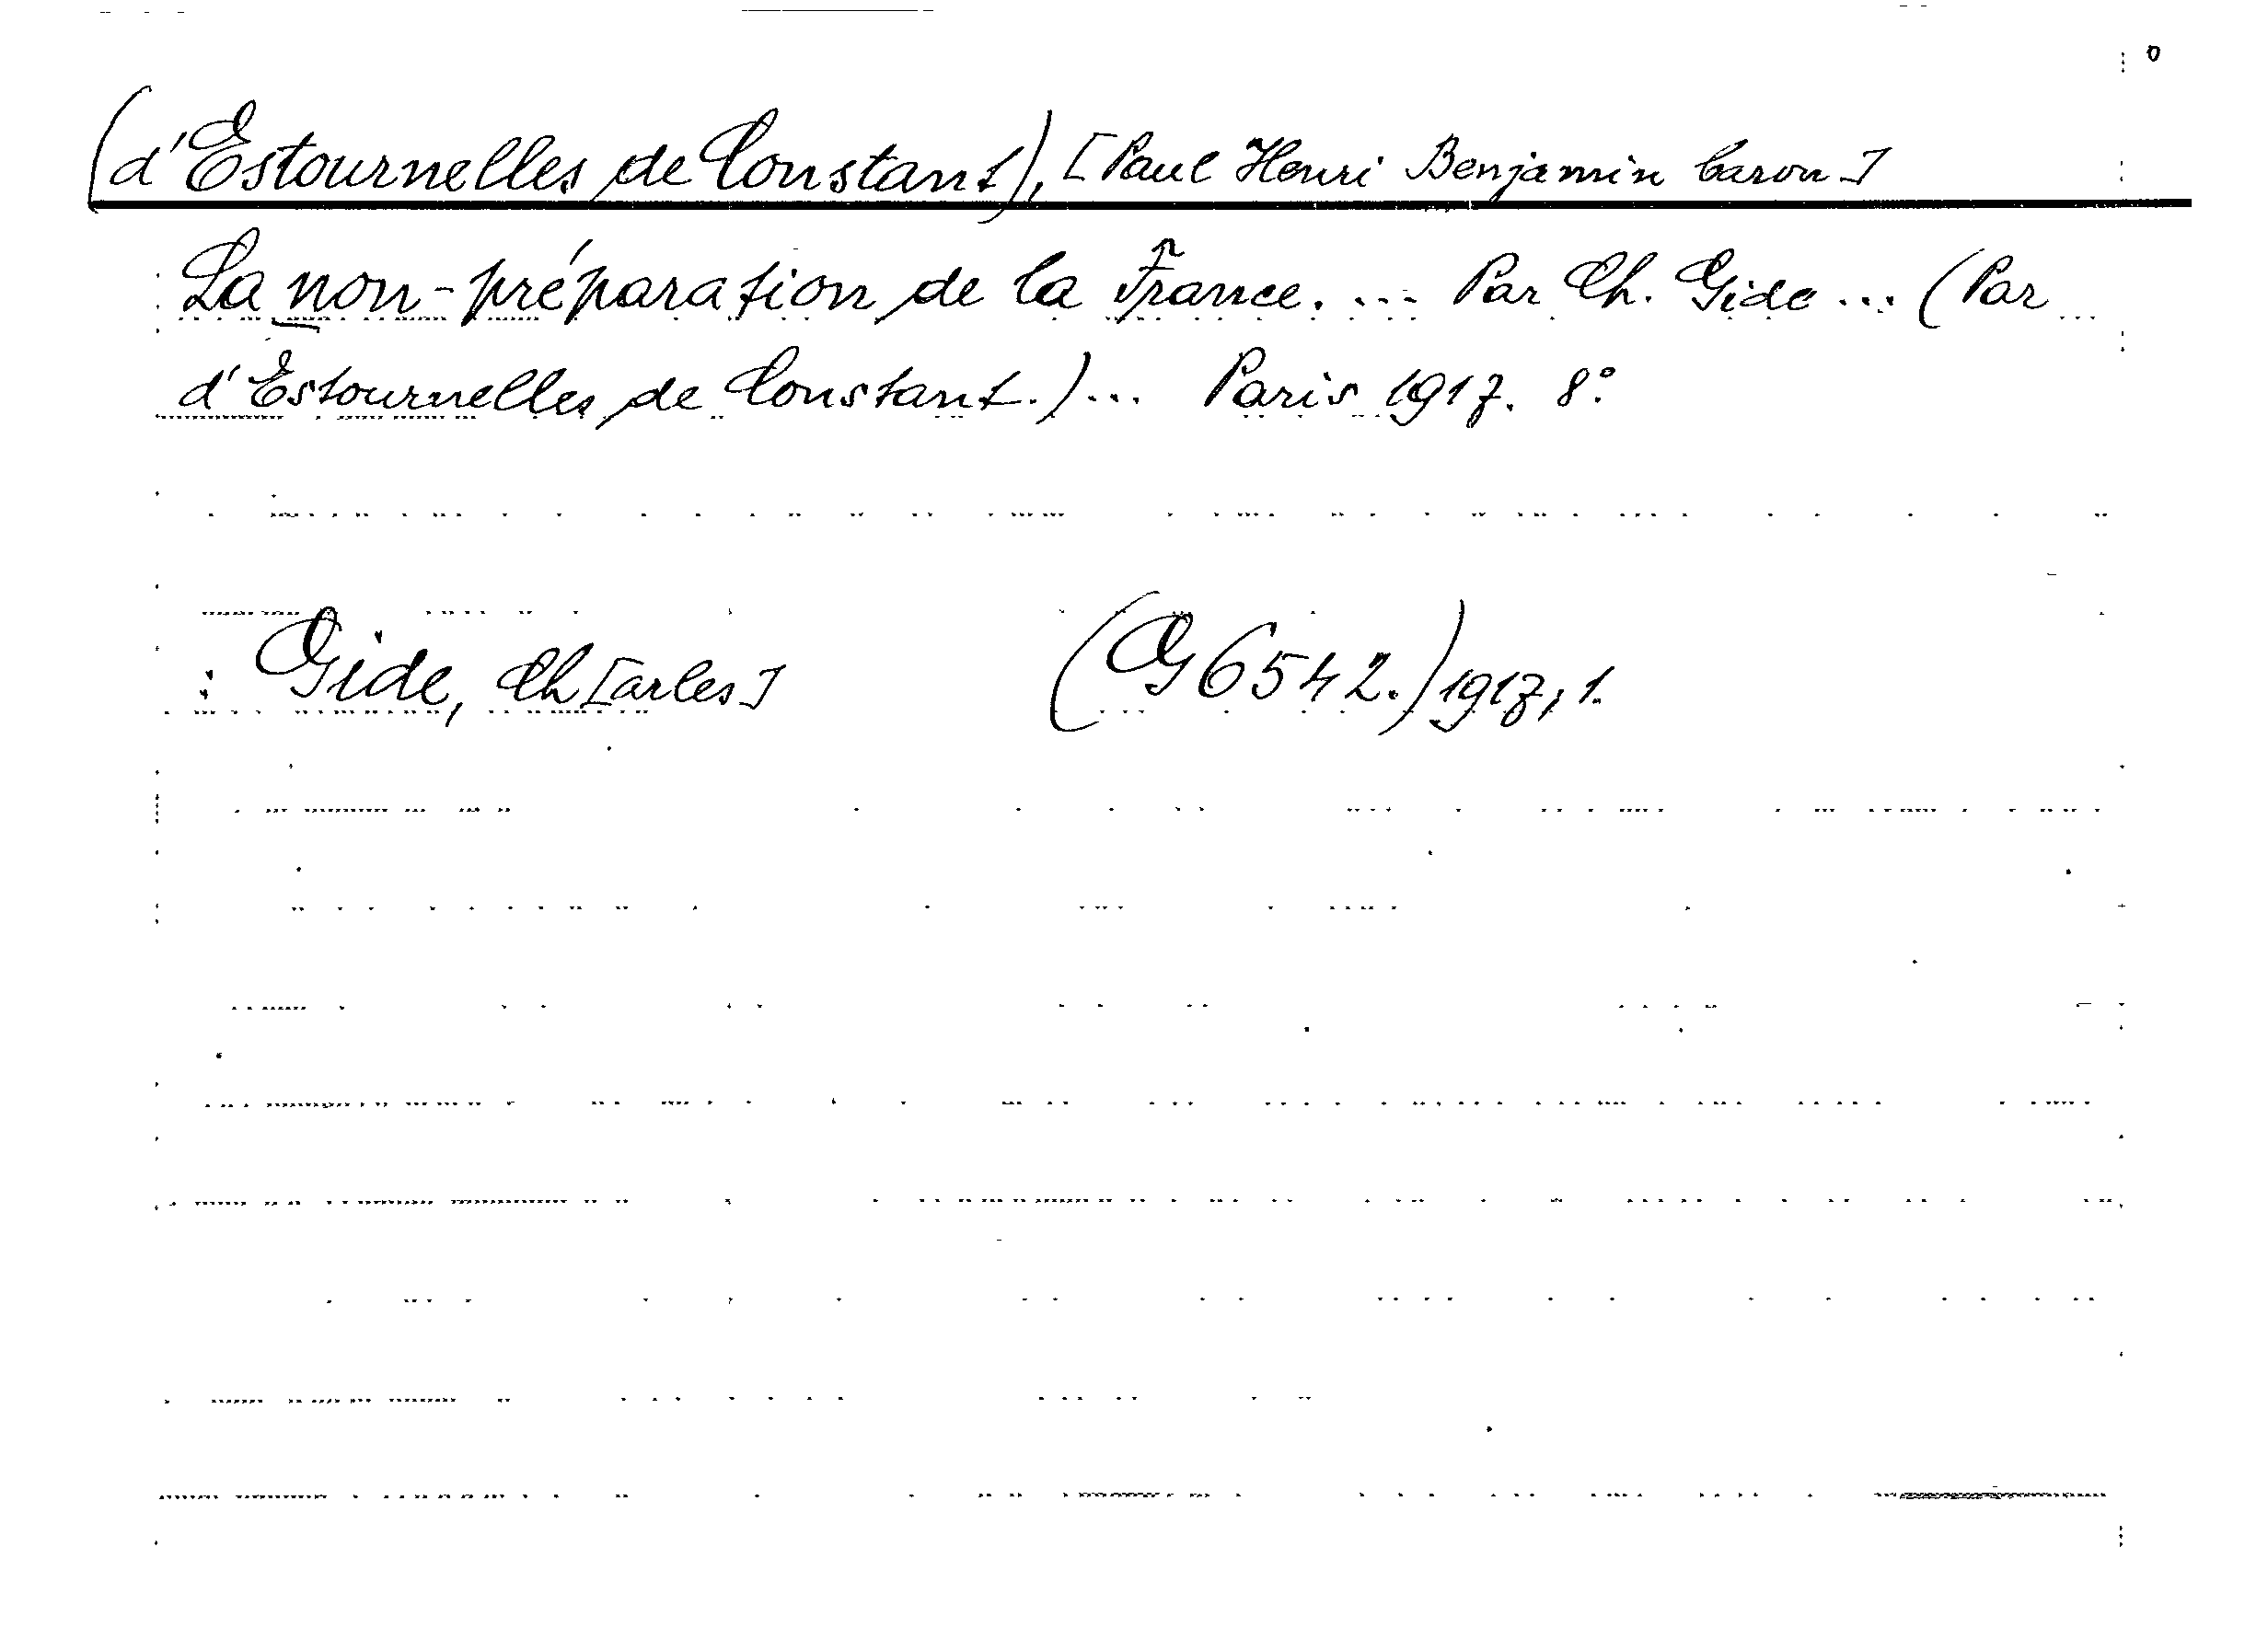 (d'Estournelles de Constant), [Paul Henri Benjamin baron]
La non-préparation de la France. ... Par Ch. Gide ... (Par
d'Estournelles de Constant.) ... Paris 1917. 8°.
: Gide, Ch[arles] (G 6542.) 1917, 1.